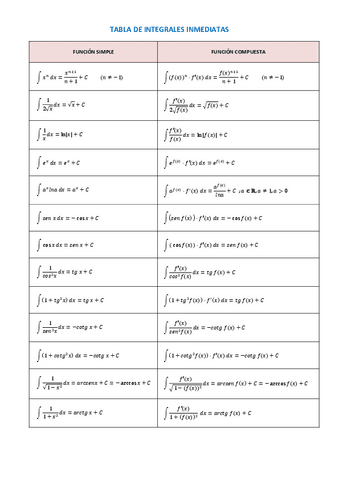 TABLA DE INTEGRALES INMEDIATAS
FUNCIÓN SIMPLE FUNCIÓN COMPUESTA
∫ xⁿ dx = xⁿ⁺¹/(n + 1) + C (n ≠ −1) ∫ (f(x))ⁿ · f'(x) dx = f(x)ⁿ⁺¹/(n + 1) + C (n ≠ −1)
∫ 1/(2√x) dx = √x + C ∫ f'(x)/(2√f(x)) dx = √f(x) + C
∫ 1/x dx = ln|x| + C ∫ f'(x)/f(x) dx = ln|f(x)| + C
∫ eˣ dx = eˣ + C ∫ e^f(x) · f'(x) dx = e^f(x) + C
∫ aˣ lna dx = aˣ + C ∫ a^f(x) · f'(x) dx = a^f(x)/lna + C ; a ∈ ℝ, a ≠ 1, a > 0
∫ sen x dx = −cos x + C ∫ (sen f(x)) · f'(x) dx = −cos f(x) + C
∫ cos x dx = sen x + C ∫ (cos f(x)) · f'(x) dx = sen f(x) + C
∫ 1/cos²x dx = tg x + C ∫ f'(x)/cos²f(x) dx = tg f(x) + C
∫ (1 + tg²x) dx = tg x + C ∫ (1 + tg²f(x)) · f'(x) dx = tg f(x) + C
∫ 1/sen²x dx = −cotg x + C ∫ f'(x)/sen²f(x) dx = −cotg f(x) + C
∫ (1 + cotg²x) dx = −cotg x + C ∫ (1 + cotg²f(x)) · f'(x) dx = −cotg f(x) + C
∫ 1/√(1 − x²) dx = arcsenx + C = −arccos x + C ∫ f'(x)/√(1 − (f(x))²) dx = arcsen f(x) + C = −arccos f(x) + C
∫ 1/(1 + x²) dx = arctg x + C ∫ f'(x)/(1 + (f(x))²) dx = arctg f(x) + C